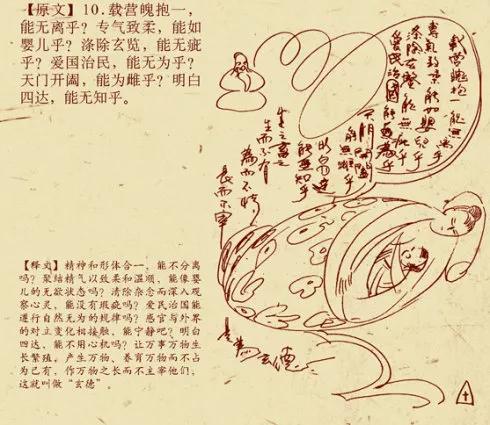 【原文】10.载营魄抱一，
能无离乎？专气致柔，能如
婴儿乎？涤除玄览，能无疵
乎？爱国治民，能无为乎？
天门开阖，能为雌乎？明白
四达，能无知乎。
載營魄抱一能無離乎
專氣致柔能如嬰兒乎
滌除玄覽能無疵乎
愛民治國能無為乎
天門開闔能無雌乎
明白四達能無知乎
生之畜之
生而不有
為而不恃
長而不宰
是為玄德
十
【释文】精神和形体合一，能不分离
吗？聚结精气以致柔和温顺，能像婴
儿的无欲状态吗？清除杂念而深入观
察心灵，能没有瑕疵吗？爱民治国能
遵行自然无为的规律吗？感官与外界
的对立变化相接触，能宁静吧？明白
四达，能不用心机吗？让万事万物生
长繁殖，产生万物、养育万物而不占
为己有，作万物之长而不主宰他们，
这就叫做“玄德”。